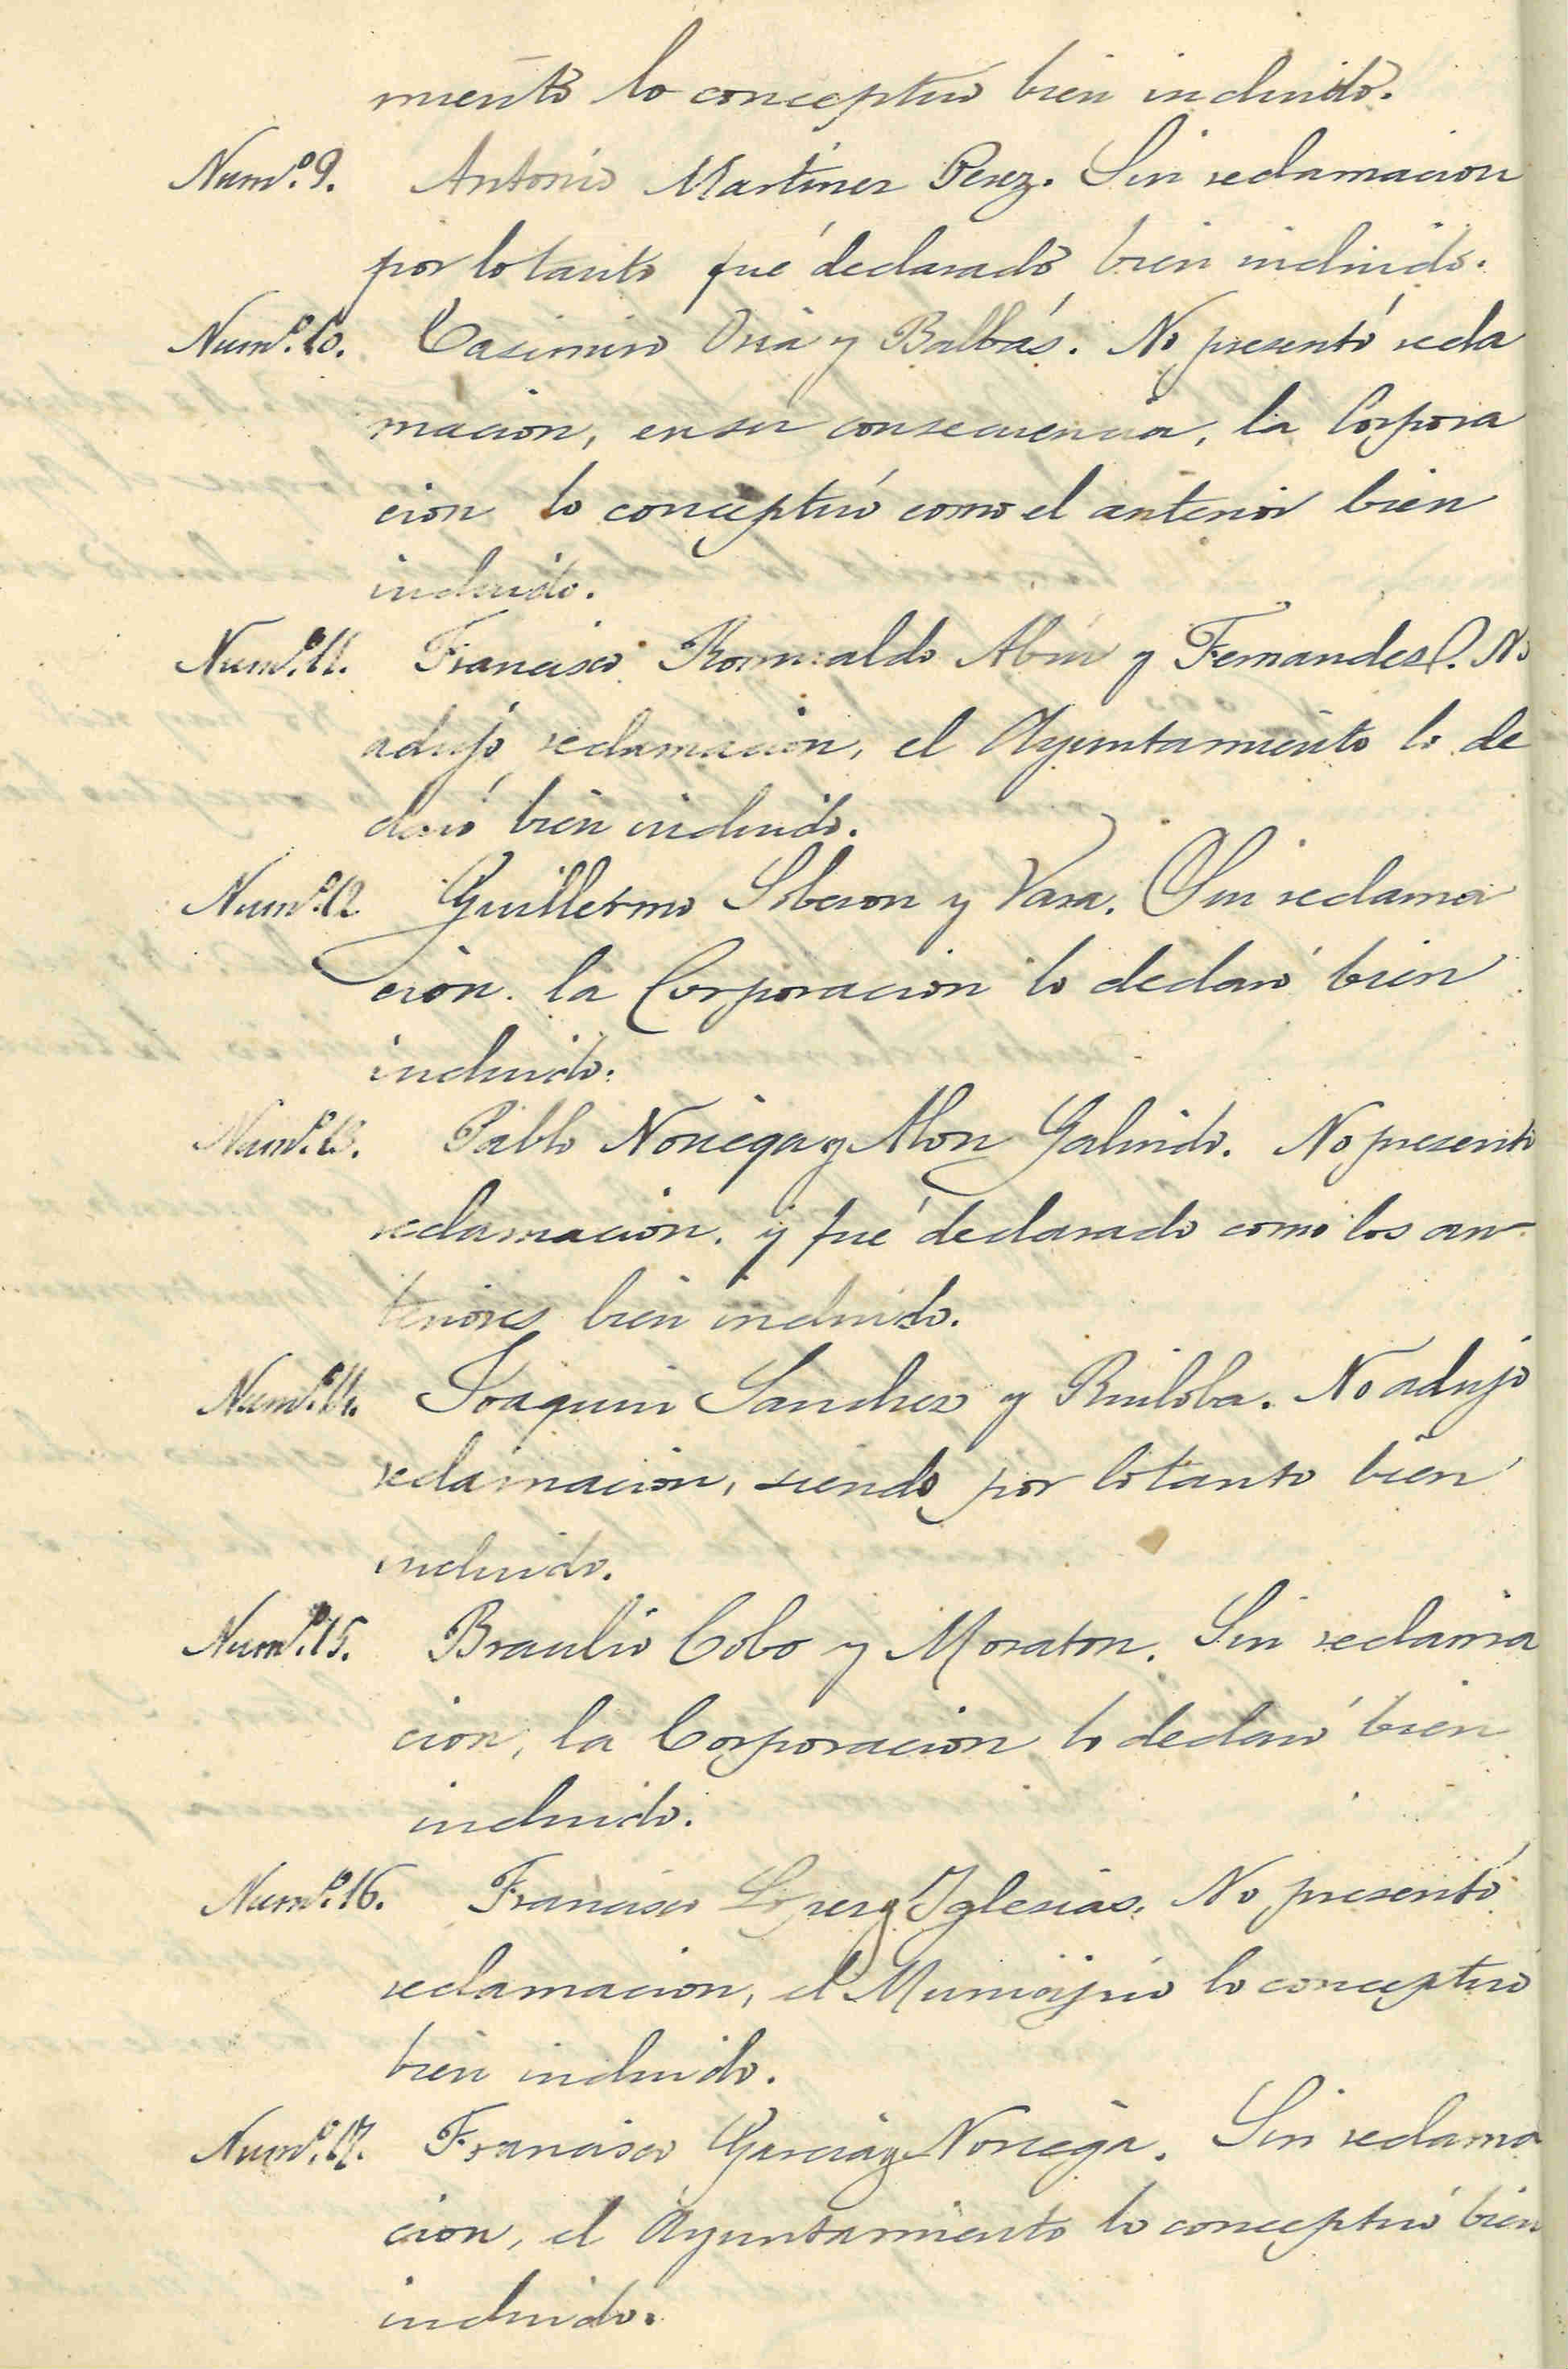 miento lo conceptuó bien incluido.
Num.º 9. Antonio Martinez Perez. Sin reclamacion
por lo tanto fué declarado bien incluido.
Num.º 10. Casimiro Oria y Balbás. No presentó recla
macion, en su consecuencia, la Corpora
cion lo conceptuó como el anterior bien
incluido.
Num.º 11. Francisco Romualdo Abin y Fernandez. No
adujo reclamacion, el Ayuntamiento lo de
claró bien incluido.
Num.º 12 Guillermo Soberon y Vara. Sin reclama
cion. la Corporacion lo declaró bien
incluido.
Num.º 13. Pablo Noriega y Galindo. No presentó
reclamacion. y fué declarado como los an-
teriores bien incluido.
Num.º 14. Joaquin Sanchez y Ruiloba. No adujo
reclamacion, siendo por lo tanto bien
incluido.
Num.º 15. Braulio Cobo y Moraton. Sin reclama
cion, la Corporacion lo declaró bien
incluido.
Num.º 16. Francisco Lopez y Iglesias. No presentó
reclamacion, el Municipio lo conceptuó
bien incluido.
Num.º 17. Francisco Garcia y Noriega. Sin reclama
cion, el Ayuntamiento lo conceptuó bien
incluido.